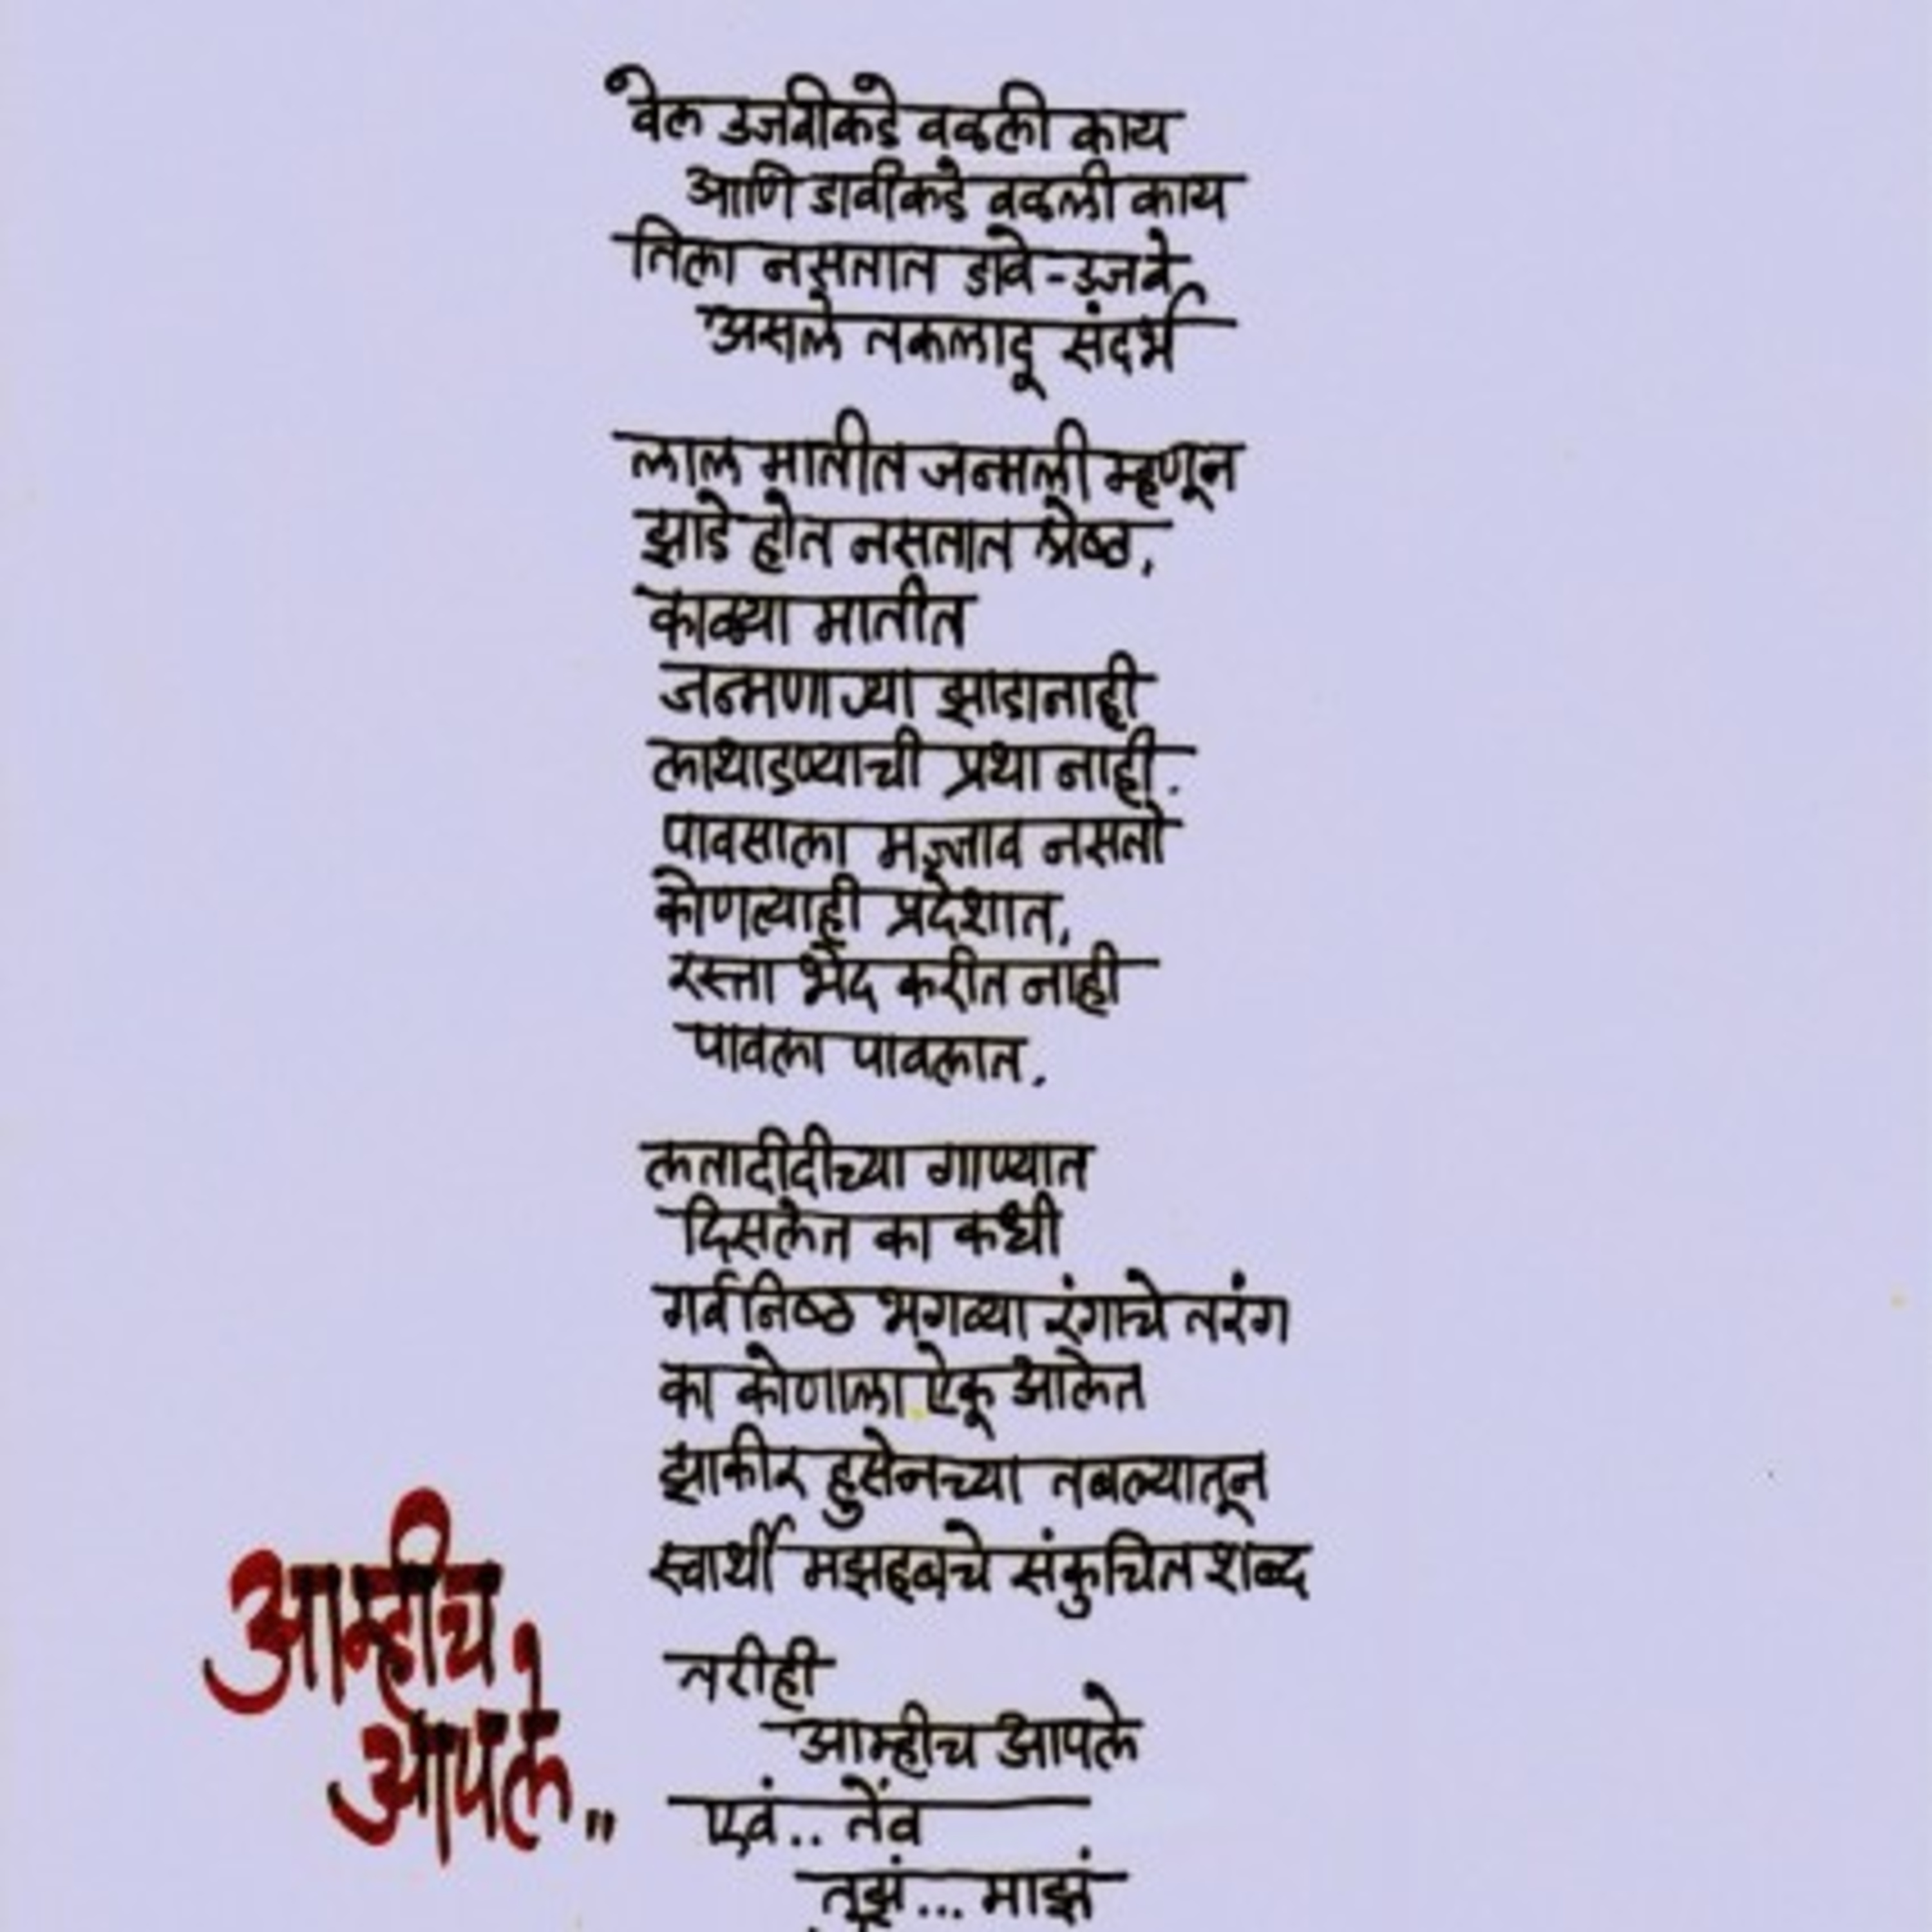 वेल उजवीकडे वळली काय
आणि डावीकडे वळली काय
तिला नसतात डावे-उजवे
असले तकलादू संदर्भ
लाल मातीत जन्मली म्हणून
झाडे होत नसतात श्रेष्ठ,
काळ्या मातीत
जन्मणाऱ्या झाडानाही
लाथाडण्याची प्रथा नाही.
पावसाला मज्जाव नसतो
कोणत्याही प्रदेशात,
रस्ता भेद करीत नाही
पावला पावलात.
लतादीदीच्या गाण्यात
दिसलेत का कधी
गर्वनिष्ठ भगव्या रंगाचे तरंग
का कोणाला ऐकू आलेत
झाकीर हुसेनच्या तबल्यातून
स्वार्थी मझहबचे संकुचित शब्द
तरीही
आम्हीच आपले
एवं.. तेंव
तुझं... माझं
आम्हीच
आपले..